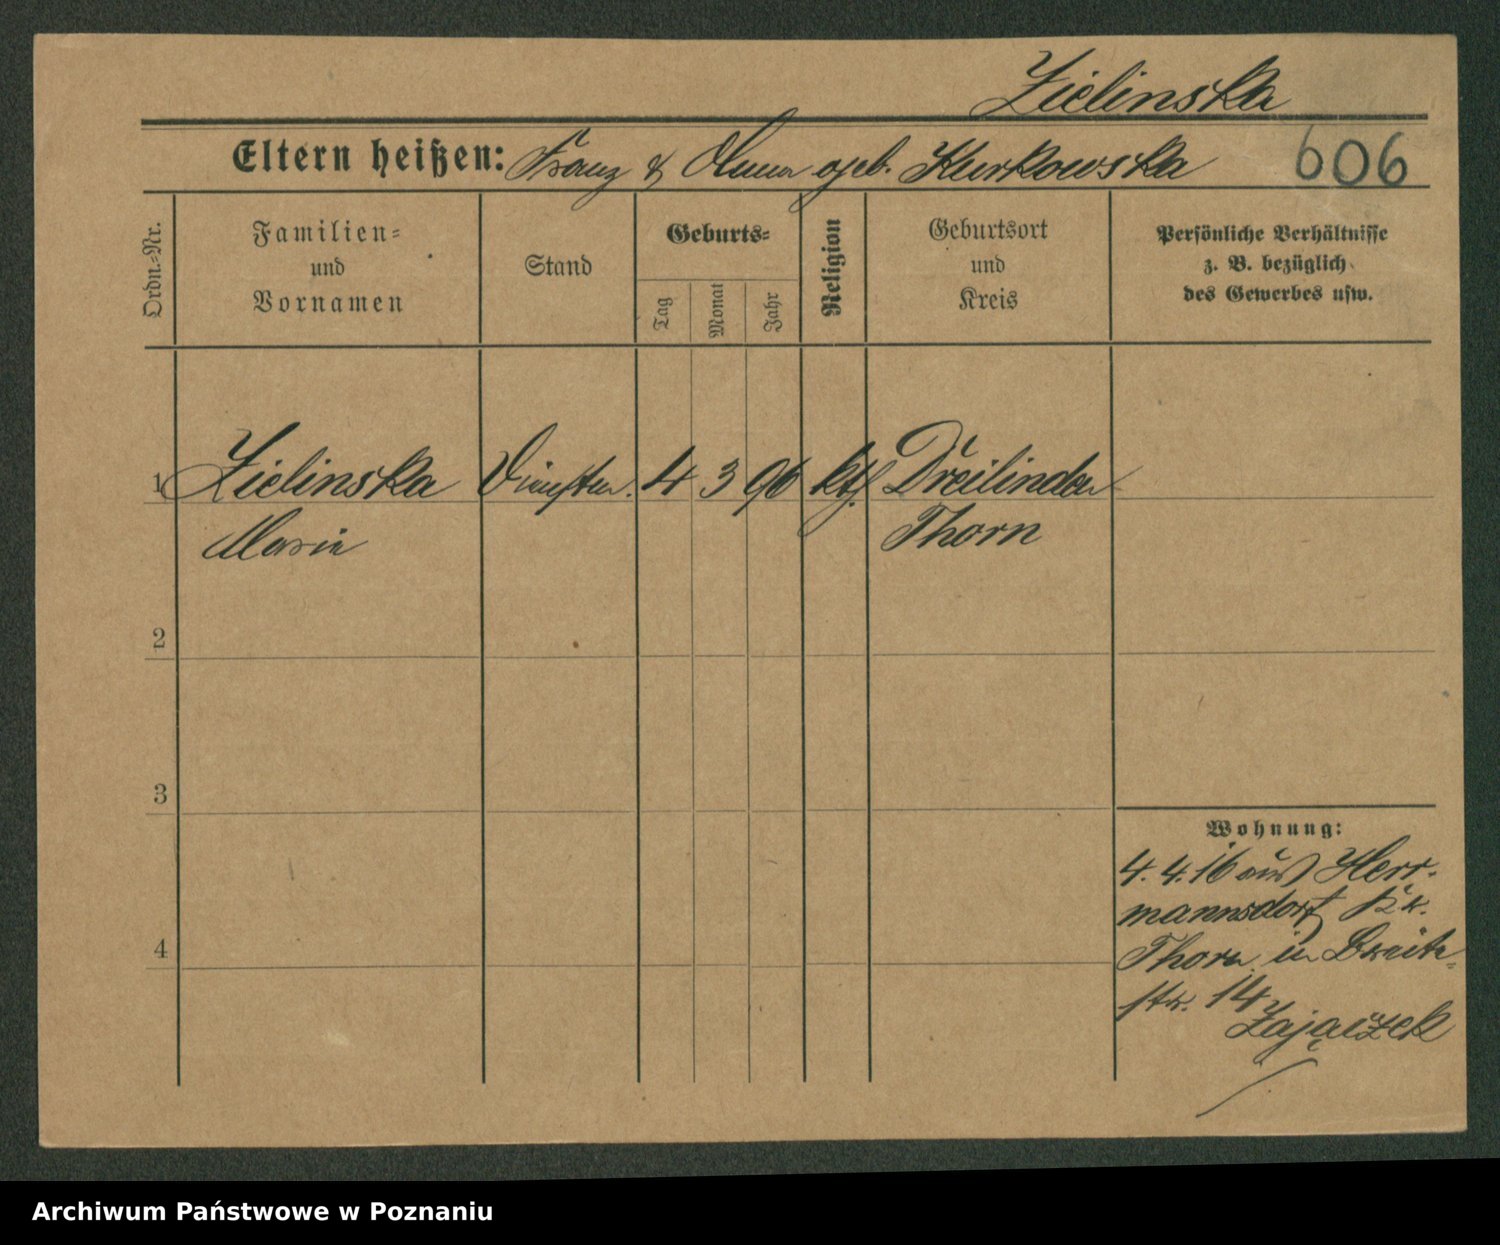 Zielinska
Eltern heißen: Franz & Anna geb. Kurkowska
606
Ordn.-Nr.
Familien-
und
Vornamen
Stand
Geburts-
Tag
Monat
Jahr
Religion
Geburtsort
und
Kreis
Persönliche Verhältnisse
z. B. bezüglich
des Gewerbes usw.
1 Zielinska Dienstm. 4 3 96 kth. Dreilinden
Marie Thorn
2
3
4
Wohnung:
4. 4. 16 aus Herr-
mannsdorf Kr.
Thorn in Breite-
str. 14
Zajączek
Archiwum Państwowe w Poznaniu